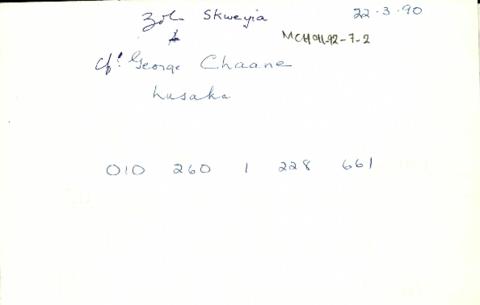 Zola Skweyia 22.3.90
MCH91-92-7-2
c/o: George Chaane
Lusaka
010 260 1 228 661